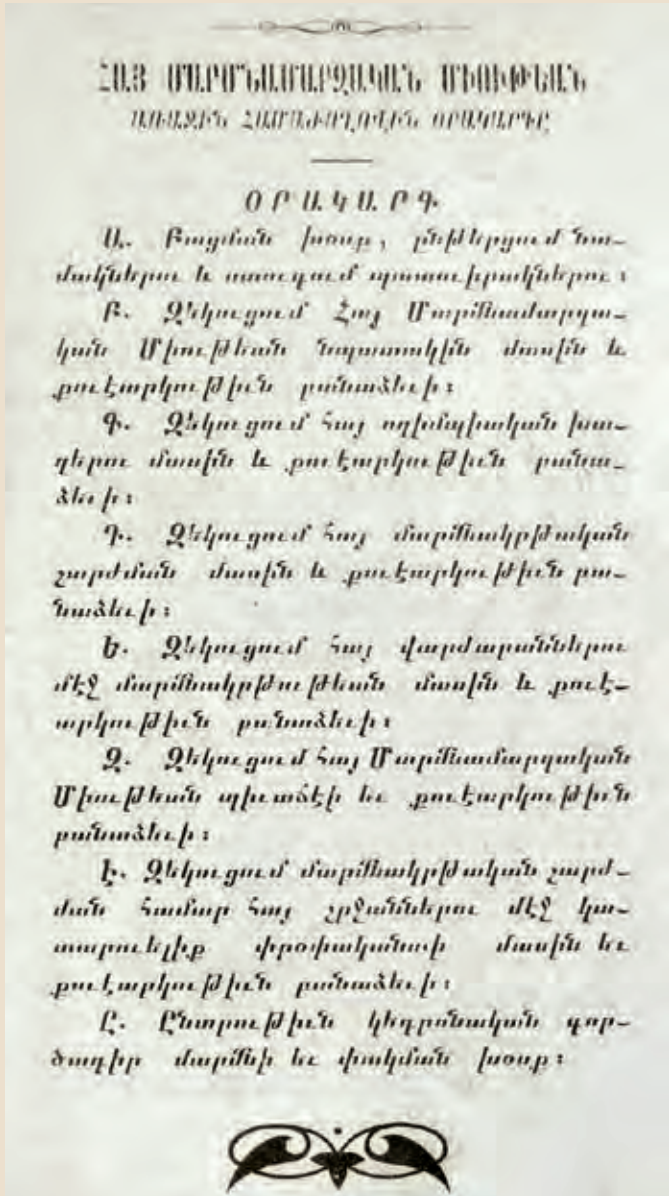 ՀԱՅ ՄԱՐՄՆԱՄԱՐԶԱԿԱՆ ՄԻՈՒԹԵԱՆ
ԱՌԱՋԻՆ ՀԱՄԱԺՈՂՈՎԻՆ ՕՐԱԿԱՐԳԸ
ՕՐԱԿԱՐԳ
Ա. Բացման խօսք, ընթերցում նա-
մակներու և ստուգում պատուիրակներու։
Բ. Զեկուցում Հայ Մարմնամարզա-
կան Միութեան նպատակին մասին և
քուէարկութիւն բանաձեւի։
Գ. Զեկուցում հայ ողիմպիական խա-
ղերու մասին և քուէարկութիւն բանա-
ձեւի։
Դ. Զեկուցում հայ մարմնակրթական
շարժման մասին և քուէարկութիւն բա-
նաձեւի։
Ե. Զեկուցում հայ վարժարաններու
մէջ մարմնակրթութեան մասին և քուէ-
արկութիւն բանաձեւի։
Զ. Զեկուցում հայ Մարմնամարզական
Միութեան պիւտճէի եւ քուէարկութիւն
բանաձեւի։
Է. Զեկուցում մարմնակրթական շարժ-
ման համար հայ շրջաններու մէջ կա-
տարուելիք փրօփականտի մասին եւ
քուէարկութիւն բանաձեւի։
Ը. Ընտրութիւն կեդրոնական գոր-
ծադիր մարմնի եւ փակման խօսք։